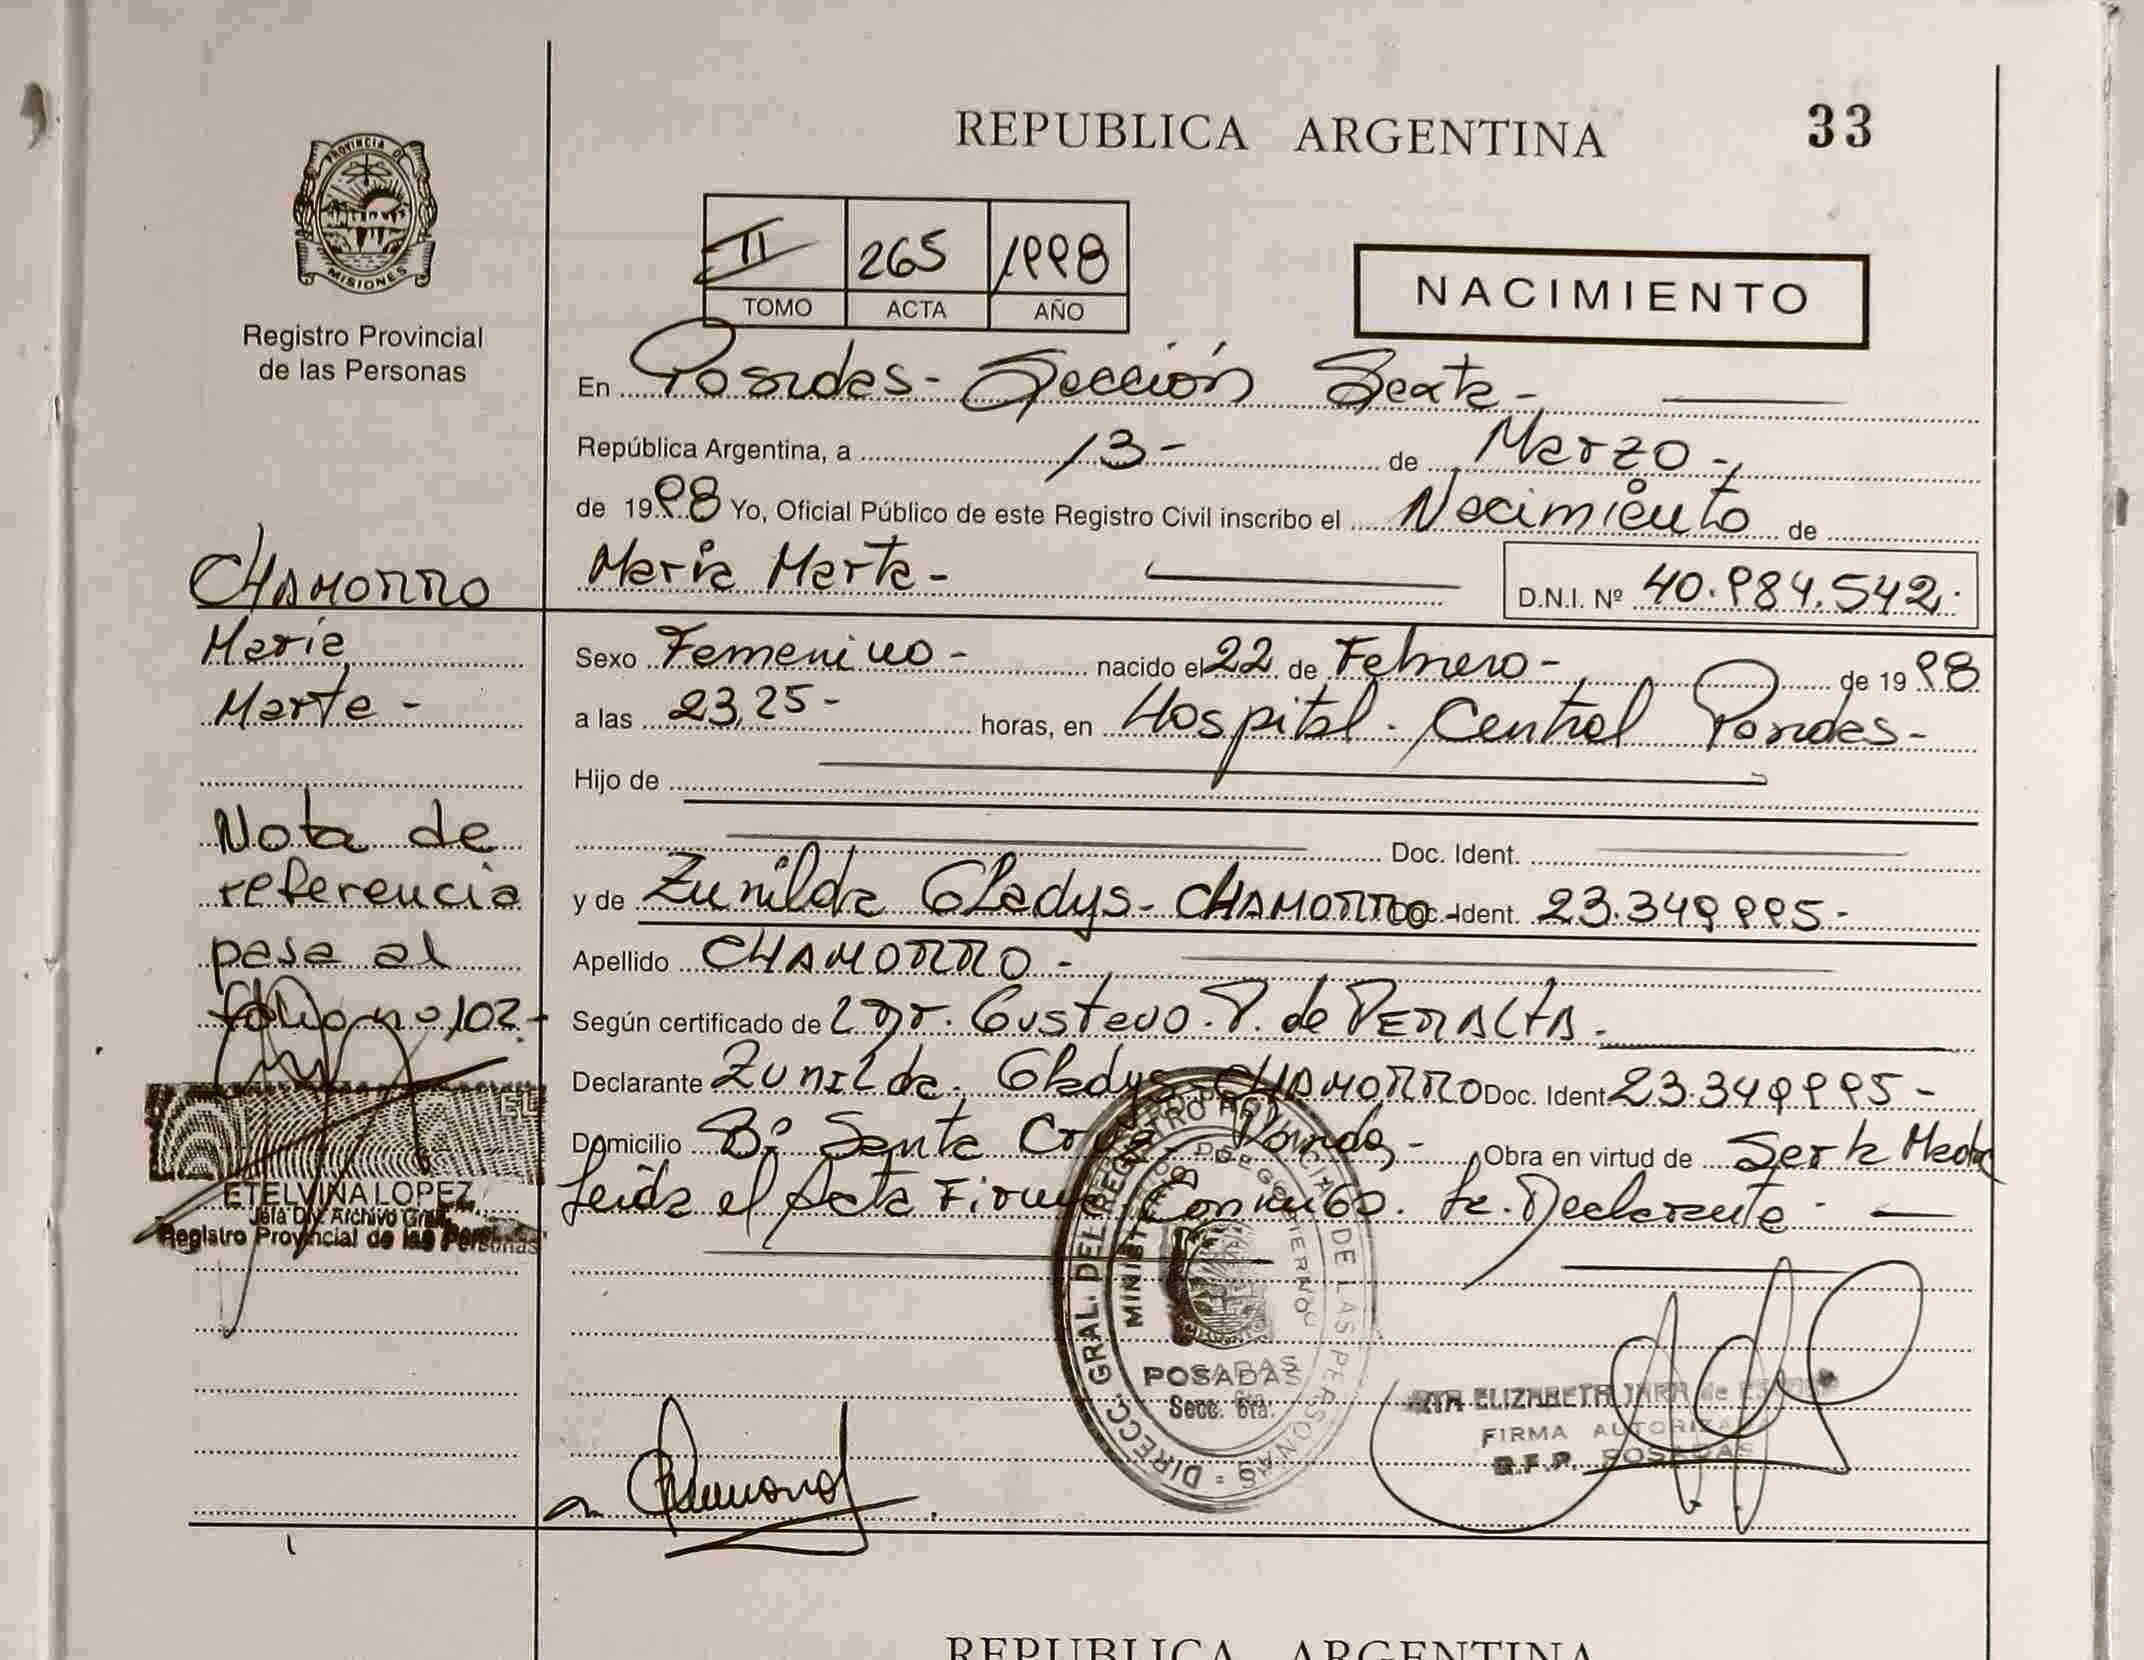 REPUBLICA ARGENTINA
33
PROVINCIA DE
MISIONES
Registro Provincial
de las Personas
II 265 1998
TOMO ACTA AÑO
NACIMIENTO
En Posadas - Sección Sexta -
República Argentina, a 13 - de Marzo -
de 1998 Yo, Oficial Público de este Registro Civil inscribo el Nacimiento de
María Marta -
D.N.I. Nº 40.984.542.
CHAMORRO
María
Marta -
Nota de
referencia
pasa al
folio nº 102 -
ETELVINA LOPEZ
Jefa Div. Archivo Gral.
Registro Provincial de las Personas
Sexo Femenino - nacido el 22 de Febrero - de 1998
a las 23,25 - horas, en Hospital. Central Posadas -
Hijo de
Doc. Ident.
y de Zunilda Gladys - CHAMORRO Doc. Ident. 23.349.995 -
Apellido CHAMORRO -
Según certificado de Gustavo. P. de PERALTA.
Declarante Zunilda. Gladys CHAMORRO Doc. Ident. 23.349.995 -
Domicilio Bº Santa Cruz Posadas - Obra en virtud de Ser la Madre
Leída el Acta Firma Conmigo. La. Declarante -
DIRECC. GRAL. DEL REGISTRO PROVINCIAL DE LAS PERSONAS
MINISTERIO DE GOBIERNO
POSADAS
Secc. 6ta.
ELIZABETH JARA de
FIRMA AUTORIZADA
POSADAS
REPUBLICA ARGENTINA